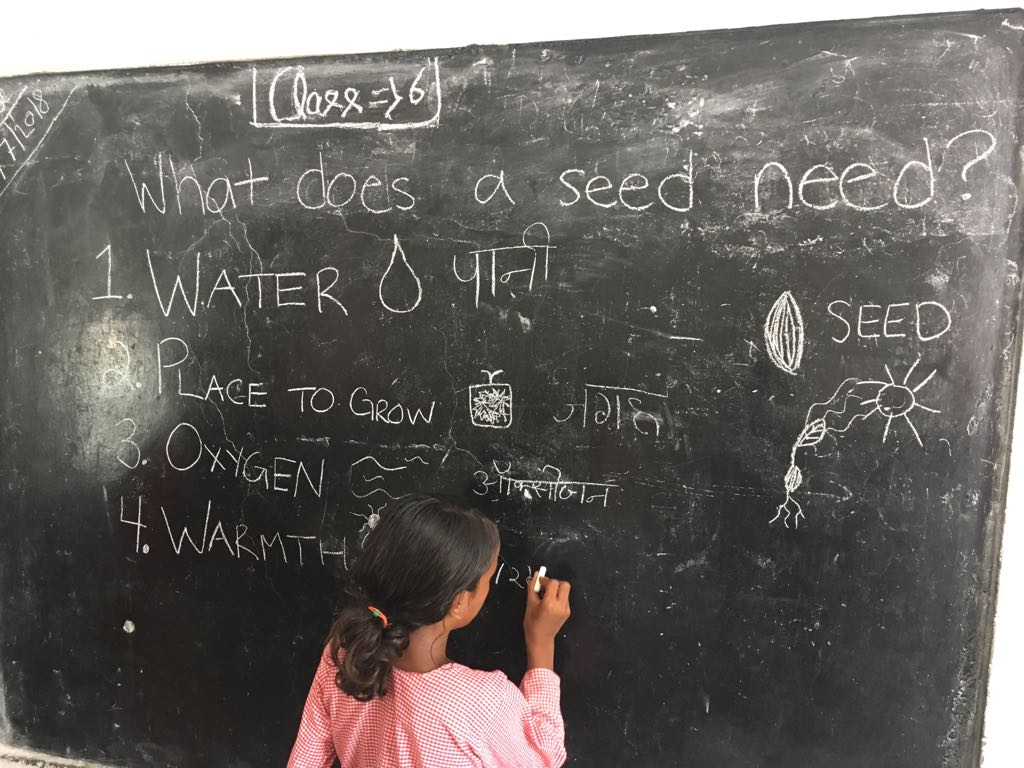 Class => 6
What does a seed need?
1. WATER पानी
SEED
2. PLACE TO GROW
3. OXYGEN ऑक्सीजन
4. WARMTH